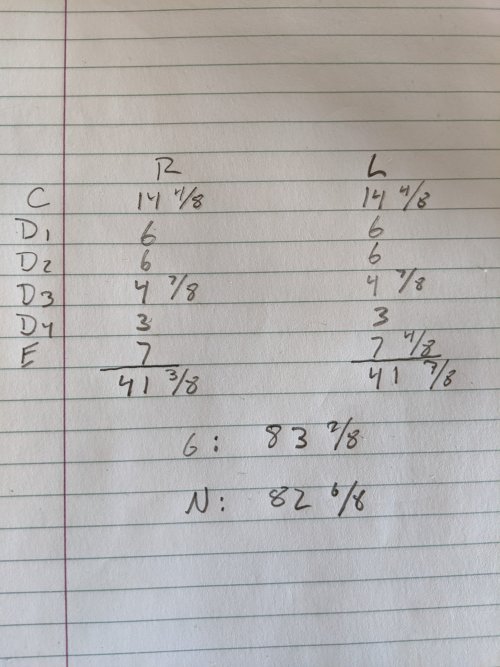 R L
C 14 4/8 14 4/8
D1 6 6
D2 6 6
D3 4 7/8 4 7/8
D4 3 3
E 7 7 4/8
41 3/8 41 7/8
G: 83 2/8
N: 82 6/8